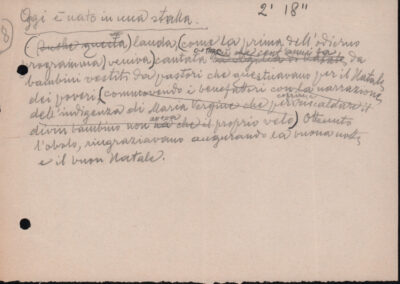 Oggi è nato in una stalla. 2' 18"
8)
(Anche questa) lauda, (come la prima dell'odierno
programma,) veniva cantata la Vigilia di Natale, da
bambini vestiti da pastori che questuavano per il Natale
dei poveri (commovendo i benefattori con la narrazione
dell'indigenza di Maria Vergine che per riscaldare il
divin bambino non aveva che il proprio velo) Ottenuto
l'obolo, ringraziavano augurando la buona notte
e il buon Natale.